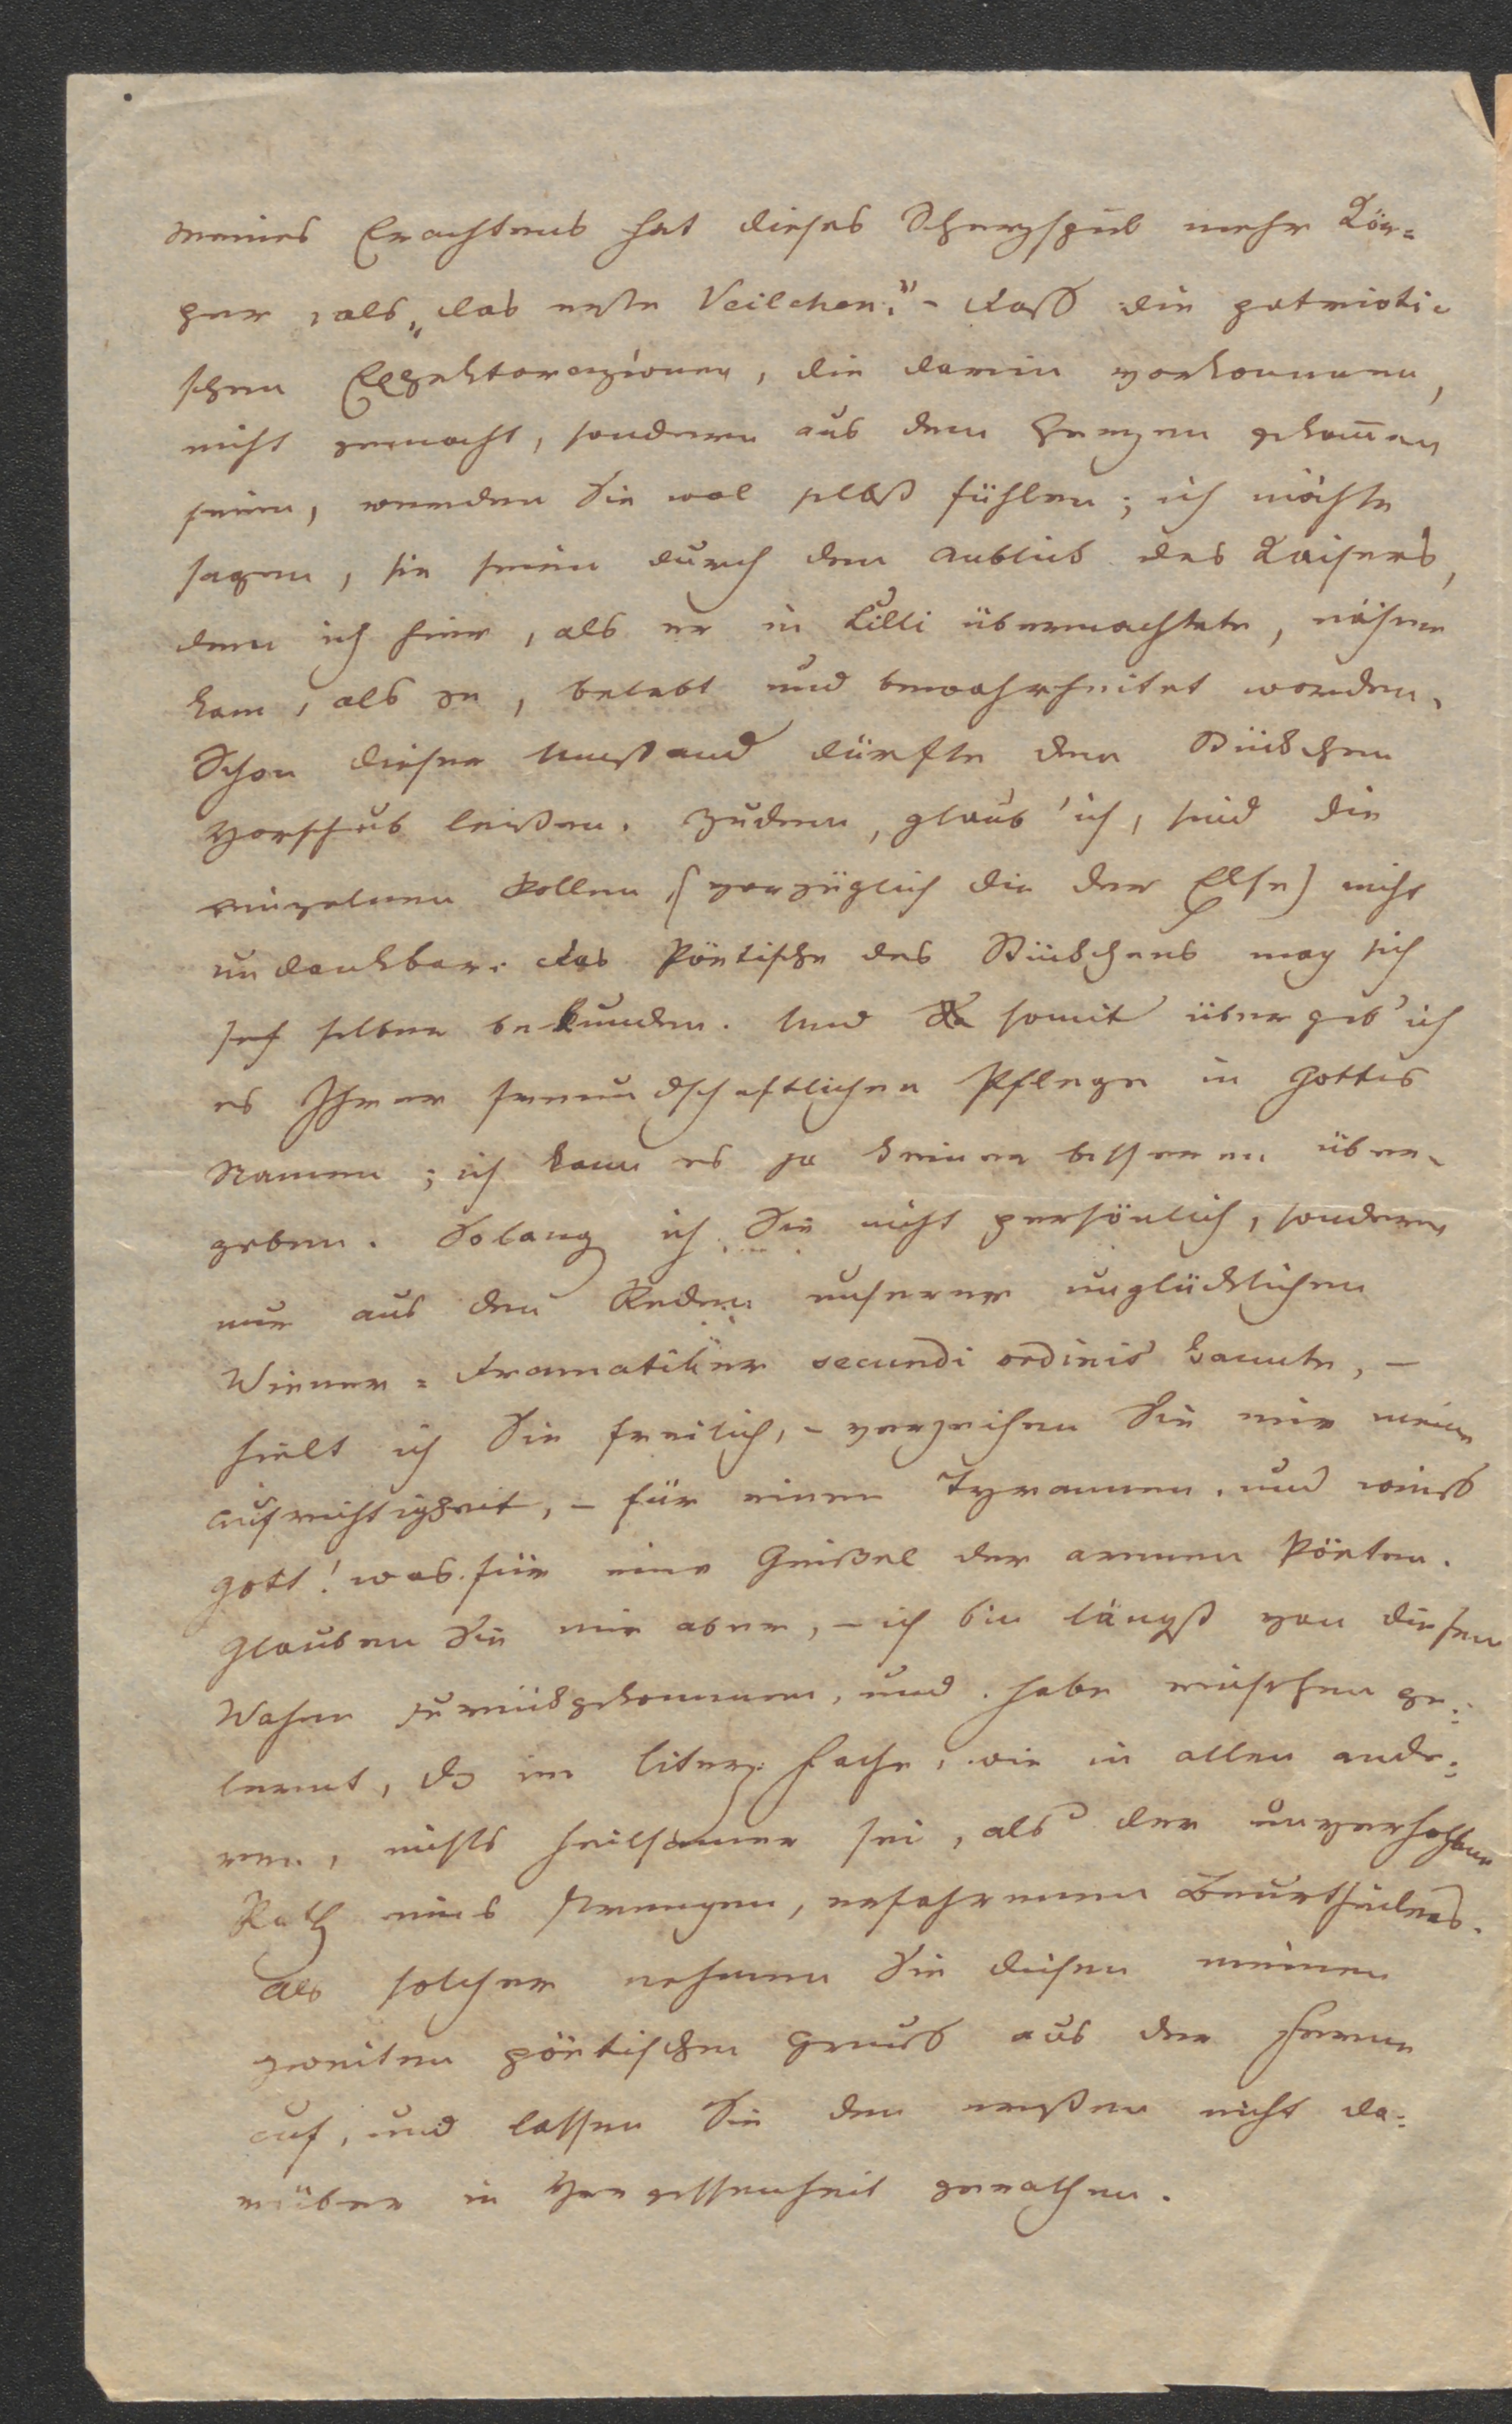 Meines Erachtens hat dieses Scherzspiel mehr Kör=
per, als „das erste Veilchen." – Dass die patrioti=
schen Expektorazionen, die darin vorkommen,
nicht gemacht, sondern aus dem Herzen gekom̅en
seien, werden Sie wol selbst fühlen; ich möchte
sagen, sie seien durch den Anblick des Kaisers,
dem ich hier, als er in Cilli übernachtete, näher
kam, als je, belebt und bewahrheitet worden.
Schon dieser Umstand dürfte dem Stückchen
Vorschub leisten. Zudem, glaub' ich, sind die
einzelnen Rollen, (vorzüglich die der Else) nicht
undankbar. Das Pöetische des Stückchens mag sich
selber bekunden. Und somit übergeb' ich
es Ihrer freundschaftlichen Pflege in Gottes
Namen; ich kann es ja keiner besseren über=
geben. Solang ich Sie nicht persönlich, sondern
nur aus den Reden unserer unglücklichen
Wiener = Dramatiker secundi ordinis kannte, –
hielt ich Sie freilich, – verzeihen Sie mir meine
Aufrichtigkeit, – für einen Tyrannen, und weiss
Gott! was für eine Geißel der armen Pöeten.
Glauben Sie mir aber, – ich bin längst von diesem
Wahne zurückgekommen, und habe einsehen ge=
lernt, dß im literar. Fache, wie in allen ande=
ren, nichts heilsamer sei, als der unverhohlene
Rath eines strengen, erfahrenen Beurtheilers.
Als solcher nehmen Sie diesen meinen
zweiten pöetischen Gruss aus der Ferne
auf, und lassen Sie den ersten nicht da=
rüber in Vergessenheit gerathen.